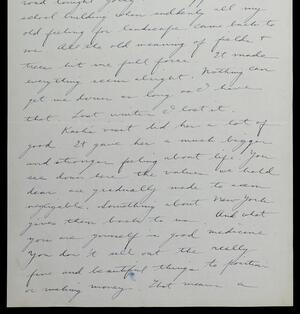 road tonight
school building when suddenly all my
old feeling for landscape came back to
me. All the old meaning of fields &
trees hit me full force. It made
everything seem alright. Nothing can
get me down as long as I have
that. Last winter I lost it.
visit did her a lot of
good. It gave her a much bigger
and stronger feeling about life. You
see down here the values we hold
dear are gradually made to seem
negligible. Something about New York
gives them back to us. And what
you are yourself is good medicine.
You don't sell out the really
fine and beautiful things to position
or making money. That means a